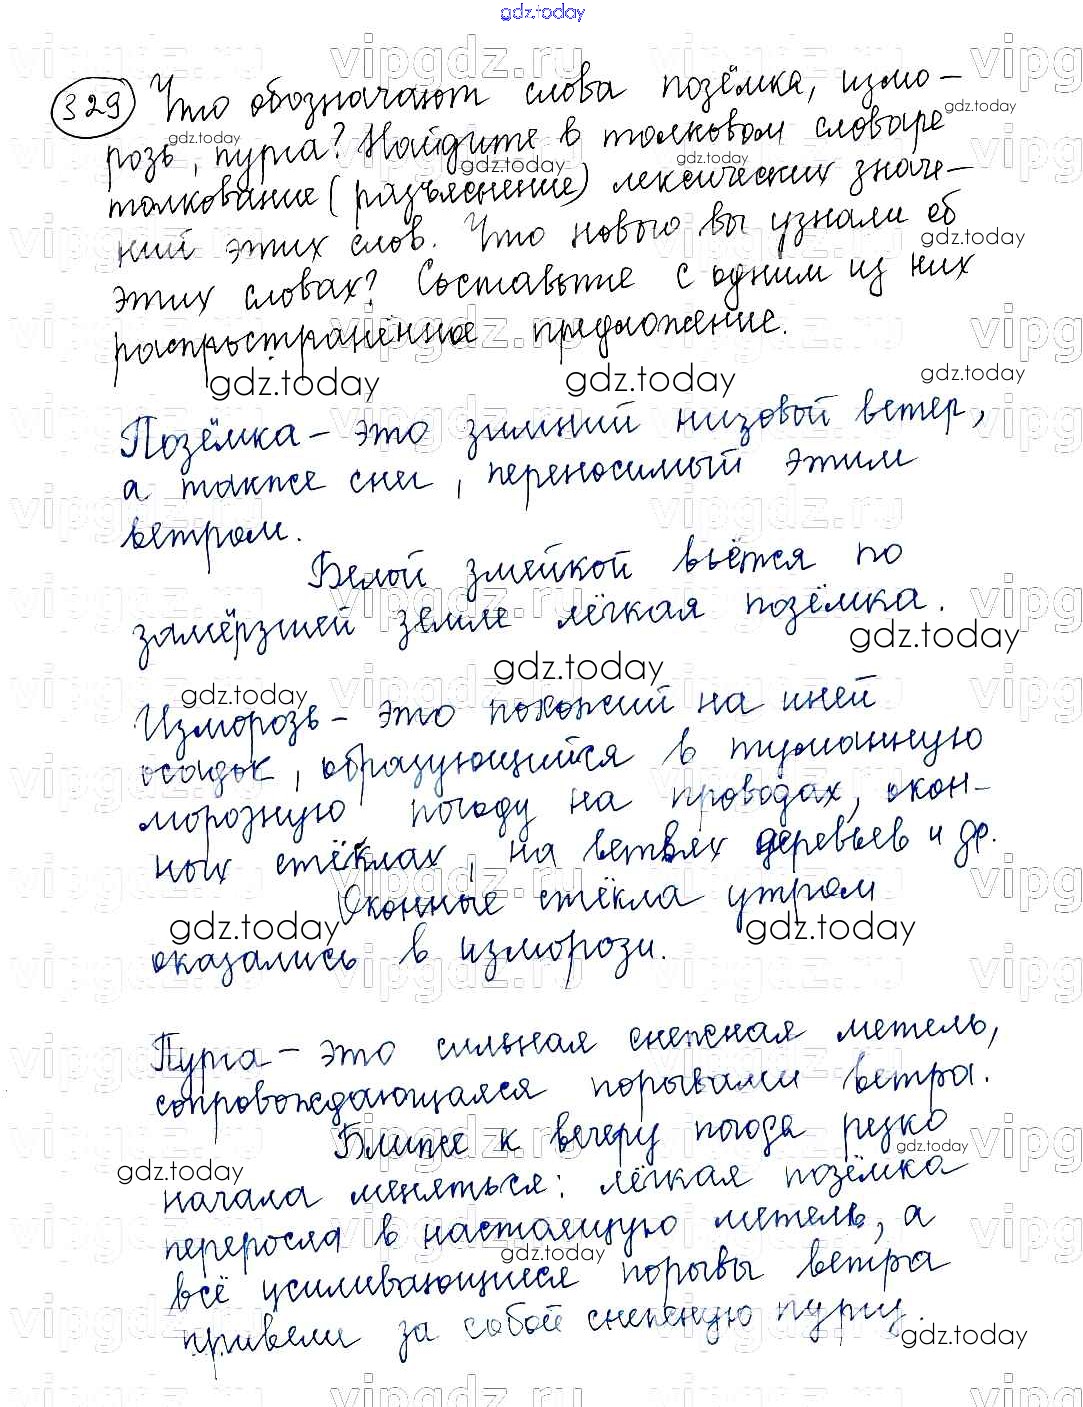 gdz.today
329 Что обозначают слова позёмка, измо-
розь, пурга? Найдите в толковом словаре
толкование (разъяснение) лексических значе-
ний этих слов. Что нового вы узнали об
этих словах? Составьте с одним из них
распространённое предложение.
Позёмка – это зимний низовой ветер,
а также снег, переносимый этим
ветром.
Белой змейкой вьётся по
замёрзшей земле лёгкая позёмка.
Изморозь – это похожий на иней
осадок, образующийся в туманную
морозную погоду на проводах, окон-
ных стёклах, на ветвях деревьев и др.
Оконные стёкла утром
оказались в изморози.
Пурга – это сильная снежная метель,
сопровождающаяся порывами ветра.
Ближе к вечеру погода резко
начала меняться: лёгкая позёмка
переросла в настоящую метель, а
всё усиливающиеся порывы ветра
привели за собой снежную пургу.